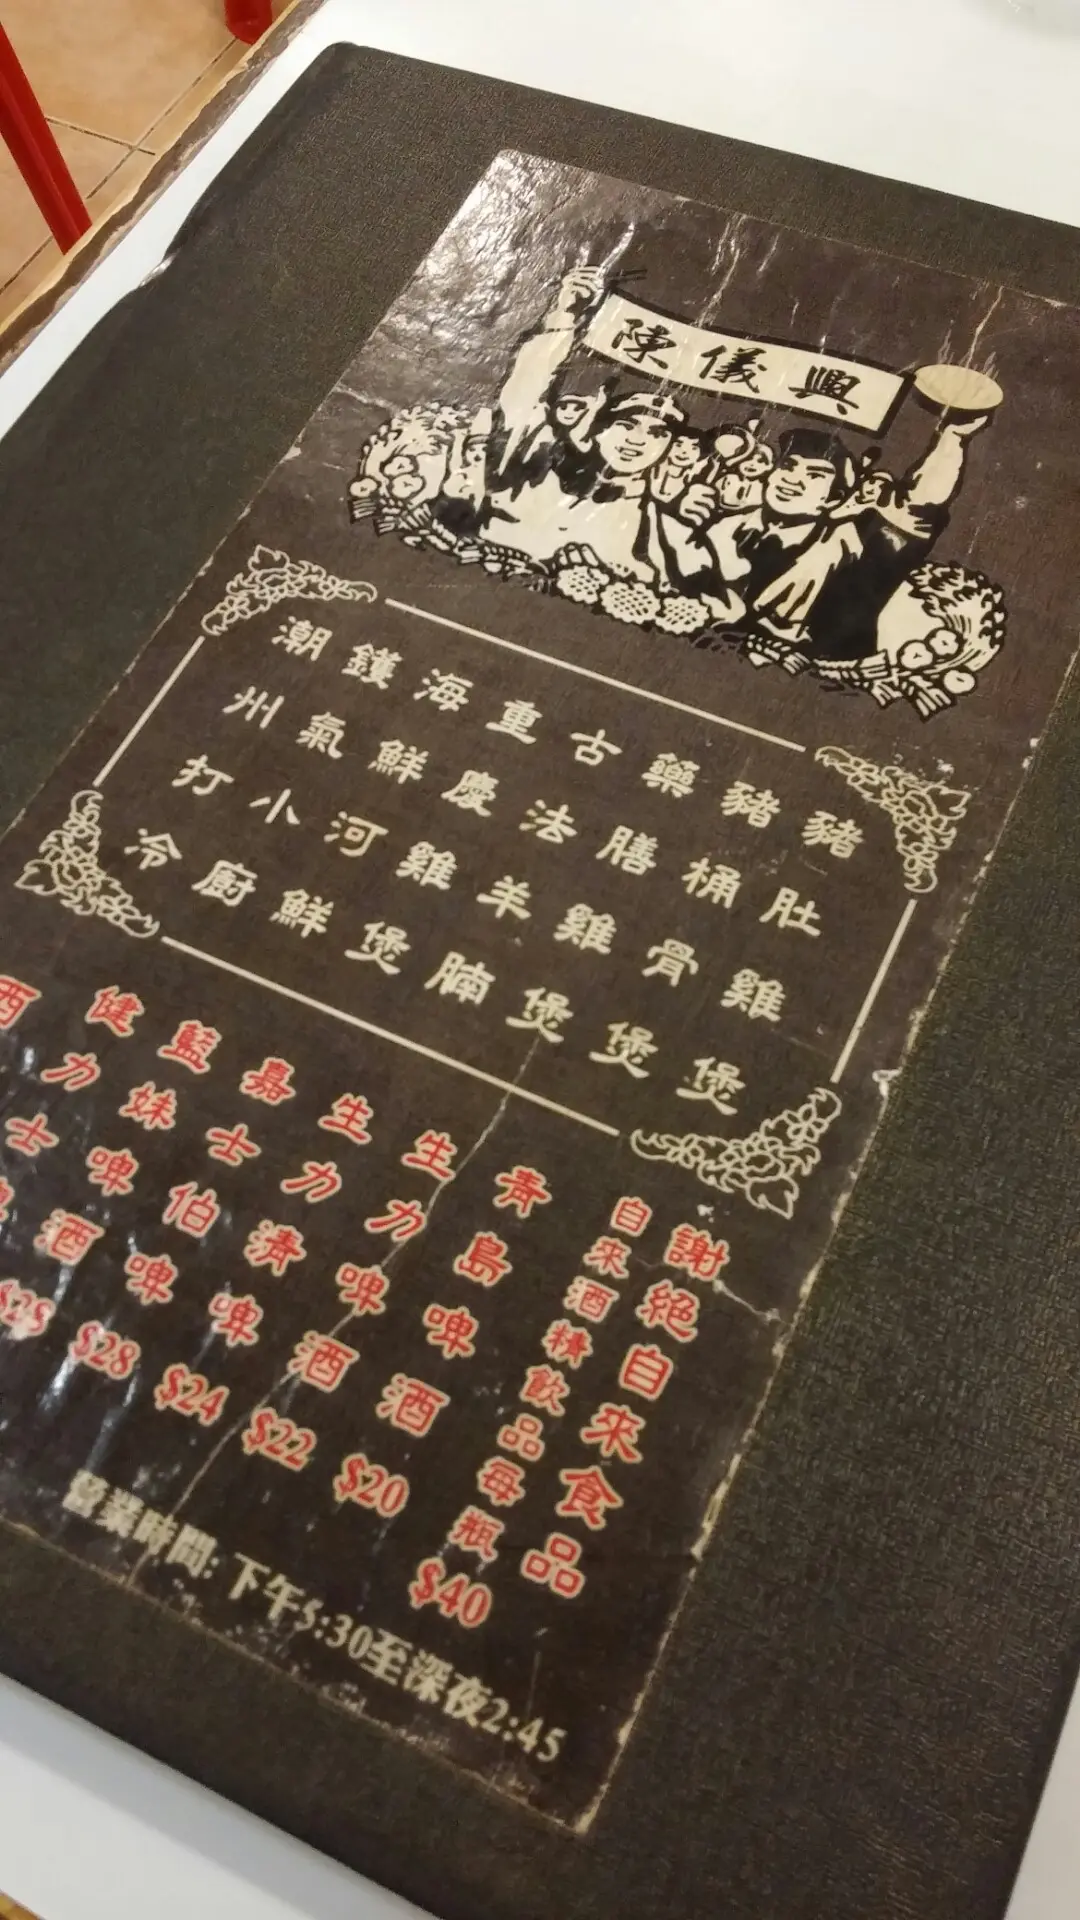 陳儀興
豬肚雞煲
豬桶骨煲
藥膳雞煲
古法羊腩
重慶雞煲
海鮮河鮮
鑊氣小廚
潮州打冷
謝絕自來食品
自來酒精飲品每瓶$40
青島啤酒$20
生力啤酒$22
生力清啤$24
嘉士伯啤$28
藍妹啤酒
健力士
營業時間: 下午5:30至深夜2:45